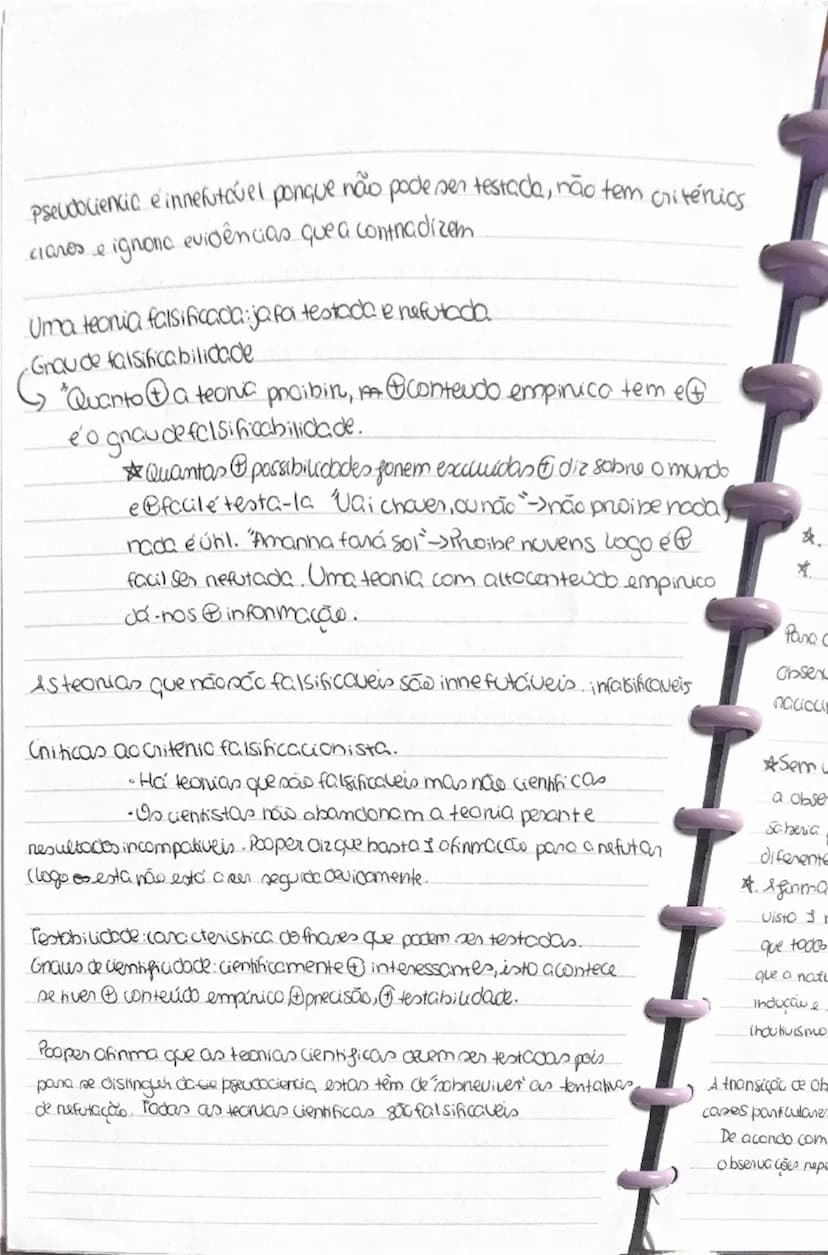 Pseudociencia é irrefutável porque não pode ser testada, não tem critérios
claros e ignora evidências que a contradizem
Uma teoria falsificada: ja foi testada e refutada.
Grau de falsificabilidade
↳ "Quanto ⊕ a teoria proibir, ⊕ conteudo empirico tem e ⊕
é o grau de falsificabilidade.
★ Quantas ⊕ possibilidades forem excluidas ⊕ diz sobre o mundo
e ⊕ facil é testa-la "Vai chover, ou não" -> não proibe nada,
nada é útil. "Amanha fará sol" -> Proibe nuvens logo é ⊕
facil ser refutada. Uma teoria com alto conteudo empirico
dá-nos ⊕ informação.
As teorias que não são falsificaveis são irrefutáveis. infalsificaveis
Criticas ao critério falsificacionista.
• Há teorias que são falsificaveis mas não cientificas
• Os cientistas não abandonam a teoria perante
resultados incompativeis. Pooper diz que basta 1 afirmação para a refutar
(logo esta não está a ser seguida devidamente.
Testabilidade: caracteristica de frases que podem ser testadas.
Graus de cientificidade: cientificamente ⊕ interessantes, isto acontece
se tiver ⊕ conteúdo empirico, ⊕ precisão, ⊕ testabilidade.
Pooper afirma que as teorias cientificas devem ser testadas pois
para se distinguir da pseudociencia, estas têm de "sobreviver" as tentativas
de refutação. Todas as teorias cientificas são falsificaveis
★.
★.
Para
obser
raciocin
★ Sem
a obse
saberia
diferente
★. Afirma
visto 1
que todos
que a natu
indução e
indutivismo
A transição de ob
casos particulare
De acordo com
observações repe